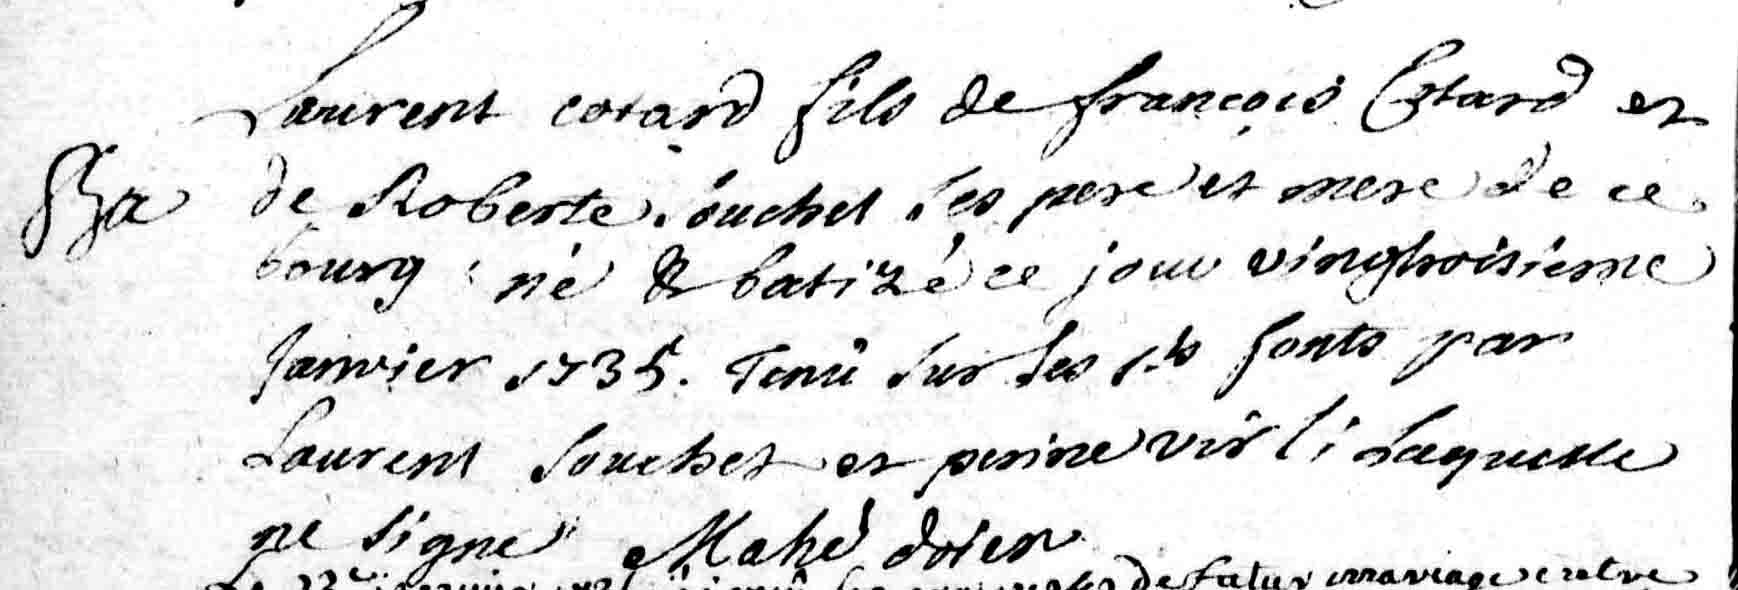 Laurent cotard fils de françois Cotard et
Ba de Roberte Souchet ses pere et mere de ce
bourg né & batizé ce jour vingtroisieme
Janvier 1735. Tenû sur les sts fonts par
Laurent Souchet et perine laquelle
ne signe Mahé doien
Le 23e de futur mariage entre